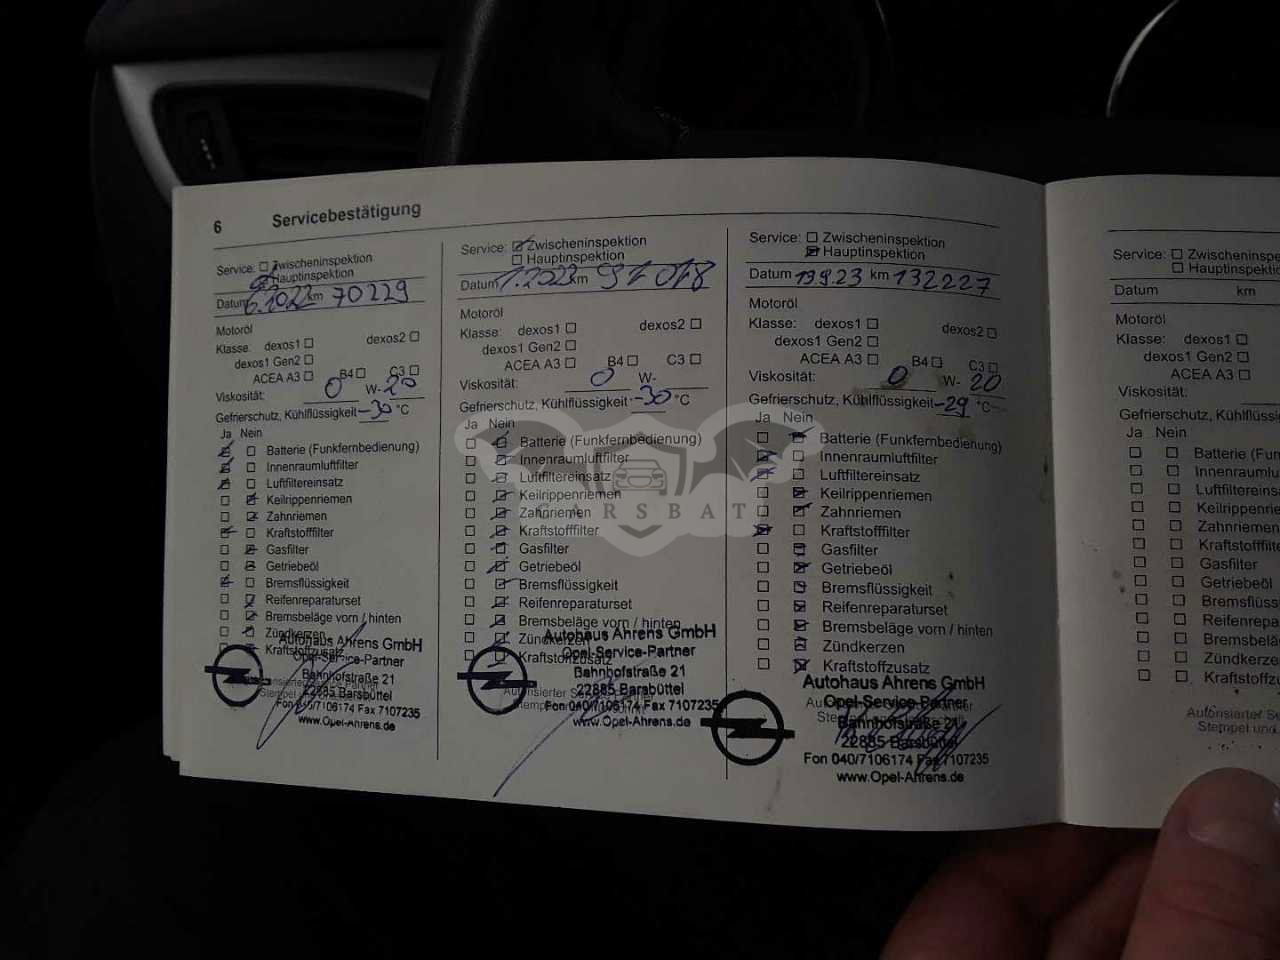 6 Servicebestätigung
Service: Zwischeninspektion
Hauptinspektion
Datum 6.10.22 km 70229
Motoröl
Klasse: dexos1 dexos2
dexos1 Gen2
ACEA A3 B4 C3
Viskosität: 0 W-20
Gefrierschutz, Kühlflüssigkeit -30 °C
Ja Nein
Batterie (Funkfernbedienung)
Innenraumluftfilter
Luftfiltereinsatz
Keilrippenriemen
Zahnriemen
Kraftstofffilter
Gasfilter
Getriebeöl
Bremsflüssigkeit
Reifenreparaturset
Bremsbeläge vorn / hinten
Zündkerzen
Kraftstoffzusatz
Autohaus Ahrens GmbH
Opel-Service-Partner
Bahnhofstraße 21
22885 Barsbüttel
Fon 040/7106174 Fax 7107235
www.Opel-Ahrens.de
Service: Zwischeninspektion
Hauptinspektion
Datum km
Motoröl
Klasse: dexos1 dexos2
dexos1 Gen2
ACEA A3 B4 C3
Viskosität: 0 W-
Gefrierschutz, Kühlflüssigkeit -30 °C
Ja Nein
Batterie (Funkfernbedienung)
Innenraumluftfilter
Luftfiltereinsatz
Keilrippenriemen
Zahnriemen
Kraftstofffilter
Gasfilter
Getriebeöl
Bremsflüssigkeit
Reifenreparaturset
Bremsbeläge vorn / hinten
Zündkerzen
Kraftstoffzusatz
Autohaus Ahrens GmbH
Opel-Service-Partner
Bahnhofstraße 21
22885 Barsbüttel
Fon 040/7106174 Fax 7107235
www.Opel-Ahrens.de
Service: Zwischeninspektion
Hauptinspektion
Datum 19.9.23 km 132227
Motoröl
Klasse: dexos1 dexos2
dexos1 Gen2
ACEA A3 B4 C3
Viskosität: 0 W-20
Gefrierschutz, Kühlflüssigkeit -29 °C
Ja Nein
Batterie (Funkfernbedienung)
Innenraumluftfilter
Luftfiltereinsatz
Keilrippenriemen
Zahnriemen
Kraftstofffilter
Gasfilter
Getriebeöl
Bremsflüssigkeit
Reifenreparaturset
Bremsbeläge vorn / hinten
Zündkerzen
Kraftstoffzusatz
Autohaus Ahrens GmbH
Opel-Service-Partner
Bahnhofstraße 21
22885 Barsbüttel
Fon 040/7106174 Fax 7107235
www.Opel-Ahrens.de
Service: Zwischeninspektion
Hauptinspektion
Datum km
Motoröl
Klasse: dexos1
dexos1 Gen2
ACEA A3
Viskosität:
Gefrierschutz, Kühlflüssig
Ja Nein
Batterie (Fun
Innenraumlu
Luftfiltereins
Keilrippenrie
Zahnriemen
Kraftstofffilte
Gasfilter
Getriebeöl
Bremsflüss
Reifenrepara
Bremsbelä
Zündkerzen
Kraftstoffzu
Autorisierter Se
Stempel und
CARSBAT